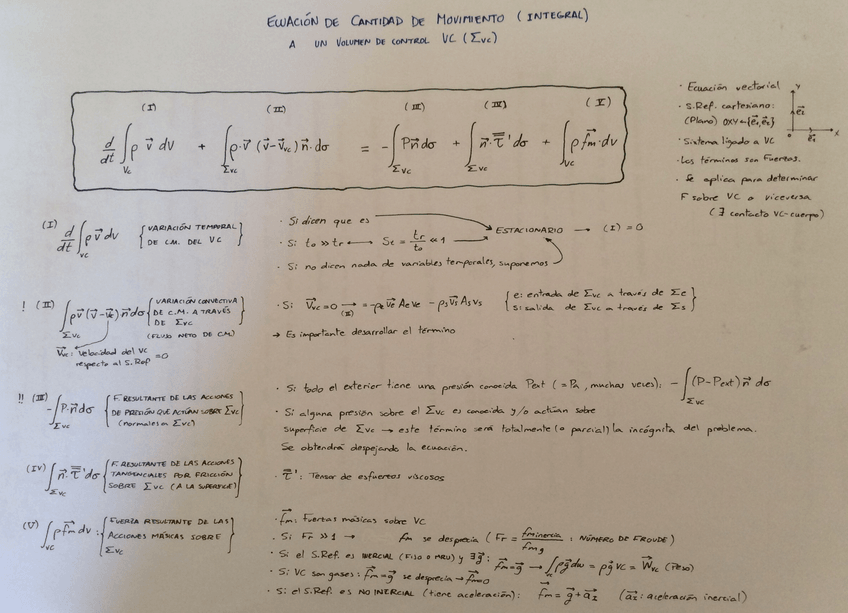 ECUACIÓN DE CANTIDAD DE MOVIMIENTO (INTEGRAL)
A UN VOLUMEN DE CONTROL VC (Σvc)
(I) (II) (III) (IV) (V)
d/dt ∫_Vc ρ v⃗ dV + ∫_Σvc ρ·v⃗ (v⃗-v⃗vc) n⃗·dσ = -∫_Σvc P n⃗ dσ + ∫_Σvc n⃗·τ̿' dσ + ∫_VC ρ f⃗m·dv
· Ecuación vectorial
· S.Ref. cartesiano:
(Plano) OXY ← {e⃗₁,e⃗₂}
· Sistema ligado a VC
· Los términos son Fuerzas.
· Se aplica para determinar
F sobre VC o viceversa
(∃ contacto VC-cuerpo)
Y e⃗₂ 0 e⃗₁ X
(I) d/dt ∫_VC ρ v⃗ dv { VARIACIÓN TEMPORAL
DE C.M. DEL VC }
· Si dicen que es
· Si: to >> tr ⟷ St = tr/to << 1
· Si: no dicen nada de variables temporales, suponemos
ESTACIONARIO → (I) = 0
! (II) ∫_Σvc ρv⃗ (v⃗-v⃗vc) n⃗ dσ { VARIACIÓN CONVECTIVA
DE C.M. A TRAVÉS
DE Σvc
(FLUJO NETO DE CM) }
V⃗vc: velocidad del VC
respecto al S.Ref = 0
· Si: V⃗vc = 0 →(II) = -ρe v⃗e Ae ve - ρs v⃗s As vs { e: entrada de Σvc a través de Σe
s: salida de Σvc a través de Σs }
→ Es importante desarrollar el término
!! (III) -∫_Σvc P·n⃗ dσ { F. RESULTANTE DE LAS ACCIONES
DE PRESIÓN QUE ACTÚAN SOBRE Σvc
(normales a Σvc) }
· Si: todo el exterior tiene una presión conocida Pext (=Pa, muchas veces): -∫_Σvc (P-Pext) n⃗ dσ
· Si alguna presión sobre el Σvc es conocida y/o actúan sobre
superficie de Σvc → este término será totalmente (o parcial) la incógnita del problema.
Se obtendrá despejando la ecuación.
(IV) ∫_Σvc n⃗·τ̿' dσ { F. RESULTANTE DE LAS ACCIONES
TANGENCIALES POR FRICCIÓN
SOBRE Σvc (A LA SUPERFICIE) }
· τ̿': Tensor de esfuerzos viscosos
(V) ∫_VC ρ f⃗m dv: { FUERZA RESULTANTE DE LAS
ACCIONES MÁSICAS SOBRE
Σvc }
· f⃗m: Fuerzas másicas sobre VC
· Si: Fr >> 1 → fm se desprecia (Fr = fm inercia / fm g : NÚMERO DE FROUDE)
· Si el S.Ref. es INERCIAL (FIJO o MRU) y ∃g⃗: f⃗m = g⃗ → ∫_VC ρg⃗ dv = ρg⃗ VC = W⃗vc (Peso)
· Si: VC son gases: f⃗m = g⃗ se desprecia → f⃗m=0
· Si: el S.Ref. es NO INERCIAL (tiene aceleración): f⃗m = g⃗ + a⃗I (a⃗I: aceleración inercial)